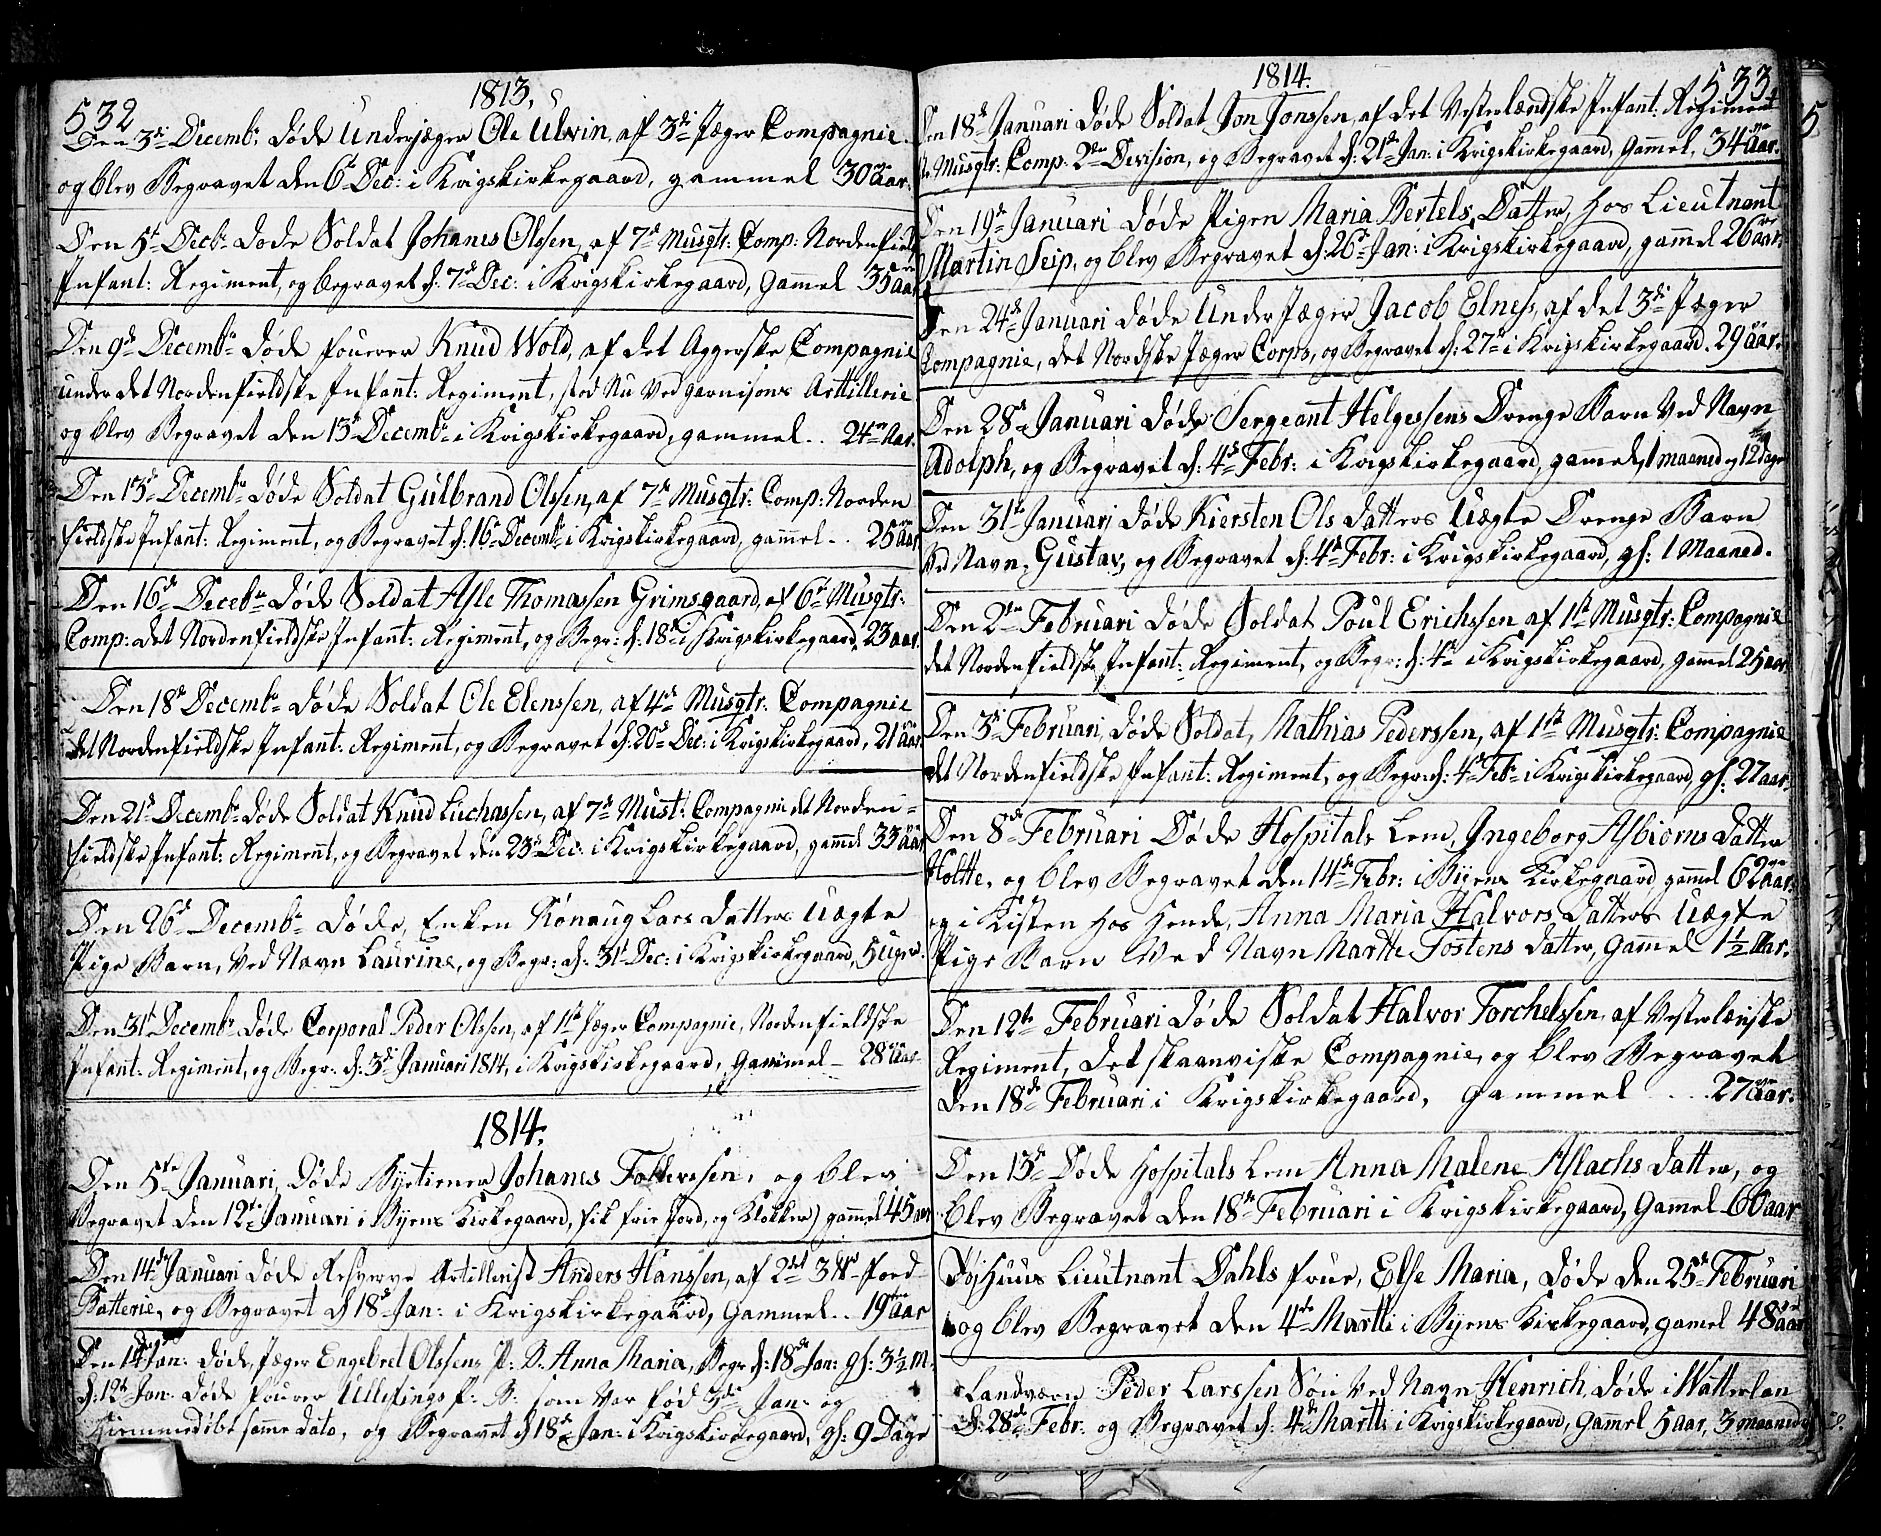 532
1813.
Den 3di Decembr: døde Underjæger Ole Ulvin, af 3di Jæger Compagnie
og blev Begravet den 6te Dec: i Krigskirkegaard, gammel 30 aar.
Den 5te Decbr døde Soldat Johanes Olssen, af 7de Musqtr: Comp: Nordenfield
Infant: Regiment, og begravet d: 7de Dec: i Krigskirkegaard, Gammel 35 aar
Den 9de Decembr døde fourer Knud Wold, af det Aggerske Compagnie
under det Nordenfieldske Infant: Regiment, stod Nu ved garnisons Arttillerie
og blev Begravet den 13de Decembr i Krigskirkegaard, gammel .. 24 Aar.
Den 13de Decembr døde Soldat Gulbrand Olssen, af 7de Musqtr: Comp: Norden
fieldske Infant: Regiment, og Begravet d: 16de Decembr i Krigskirkegaard, gammel .. 25 aar
Den 16de Decebr døde Soldat Asle Thomassen Grimsgaard, af 6te Musqtr:
Comp: det Nordenfieldske Infant: Regiment, og Begr: d: 18de i Krigskirkegaard, 23 aar.
Den 18de Decembr døde Soldat Ole Elenssen, af 4de Musqtr: Compagnie
det Nordenfieldske Infant: Regiment, og Begravet d: 20de Dec: i Krigskirkegaard, 21 aar.
Den 21de Decembr døde Soldat Knud Luchassen, af 7de Must: Compagnie det Norden=
fieldske Infant: Regiment, og Begravet den 23de Dec: i Krigskirkegaard, gammel 33 aar
Den 26de Decembr døde, Enken Rønaug Lars Datters Uægte
Pige Barn, Ved Navn Laurine, og Begr: d: 31te Dec: i Krigskirkegaard, 5 uger.
Den 31te Decembr døde Corporal Peder Olssen, af 1ste Jæger Compagnie, Nordenfieldske
Infant: Regiment, og Begr: d: 3die Januari 1814, i Krigskirkegaard, Gammel – 28 Aar.
1814.
Den 5te Januari, Døde Johanes Follevssen, og blev
Begravet den 12te Januari i Byens Kirkegaard, fik frie Jord, og Klokker) gammel 45 aar
Den 14de Januari døde Reserve Artillerist Anders Hanssen, af 2det 3 foed
Batterie, og Begravet d 18de Jan: i Krigskirkegaard, Gammel .. 19 aar
Den 14de Jan: døde, Jæger Engebret Olssens P: B. Anna Maria, Begr d: 18de Jan: gl: 3½ M.
d: 12te Jan: døde fourer Ullefings B: som var fød 3die Jan: og
Hiemmedøbt samme dato, og Begravet d 18de Jan: i Krigskirkegaard, gl: 9 Dage
1814.
533
Den 18de Januari døde Soldat Jon Jonssen, af det Vesterlændske Infant: Regiment
Musqtr: Comp. 2den Devision, og Begravet d: 21de Jan: i Krigskirkegaard, Gammel, 34 aar.
Den 19de Januari døde Pigen Maria Bertels Datter, hos Lieutnant
Martin Seip, og blev Begravet d: 26te Jan: i Krigskirkegaard, gammel 26 aar
Den 24de Januari døde Under Jæger Jacob Elness, af det 3die Jæger
Compagnie, det Nordske Jæger Corps, og Begravet d: 27de i Krigskirkegaard. 29 aar.
Den 28de Januari døde Sergeant Helgessens Drenge Barn Ved Navn
Adolph, og Begravet d: 4de Febr: i Krigskirkegaard, gammel, 1 maaned og 12 dage
Den 31te Januari døde Kiersten Ols Datters Uægte Drenge Barn
Ved Navn, Gustav, og Begravet d: 4de Febr: i Krigskirkegaard, gl: 1 Maaned.
Den 2den Februari døde Soldat Poul Erichssen af 1ste Musqtr: Compagnie
det Nordenfieldske Infant: Regiment, og Begr: d: 4de i Krigskirkegaard, gammel 25 aar
Den 3die Februari, døde Soldat, Mathias Pederssen, af 1ste Musqtr: Compagnie
det Nordenfieldske Infant: Regiment, og Begr: d: 4de Febr i Krigskirkegaard, gl: 22 aar.
Den 8de Februari Døde Hospitals Lem, Ingeborg Asbiørns Datter
Holtte, og blev Begravet den 14de Febr: i Byens Kirkegaard gammel 62 aar.
og i Kisten hos Hende, Anna Maria Halvors Datters Uægte
Pige Barn Ved Navn Marthe Tostens Datter, Gammel 1½ Aar.
Den 12te Februari døde Soldat Halvor Torchelssen, af Vesterlænske
Regiment, det skaanviske Compagnie, og blev Begravet
den 18de Februari i Krigskirkegaard, Gammel ... 27 aar.
Den 13de Døde Hospitals Lem Anna Malene Aslachs Datter, og
blev Begravet den 18de Februari i Krigskirkegaard, Gammel 60 aar
Tøjhuus Lieutnant Dahls frue, Else Maria, døde den 25de Februari
og blev Begravet den 4de Martti i Byens Kirkegaard, gamel 48 aar
Landværn Peder Larssen Søn Ved Navn Henrich, døde i Watterlan
d: 28de Febr: og Begravet d: 4de Martti i Krigskirkegaard, Gammel 5 aar, 3 maaneder